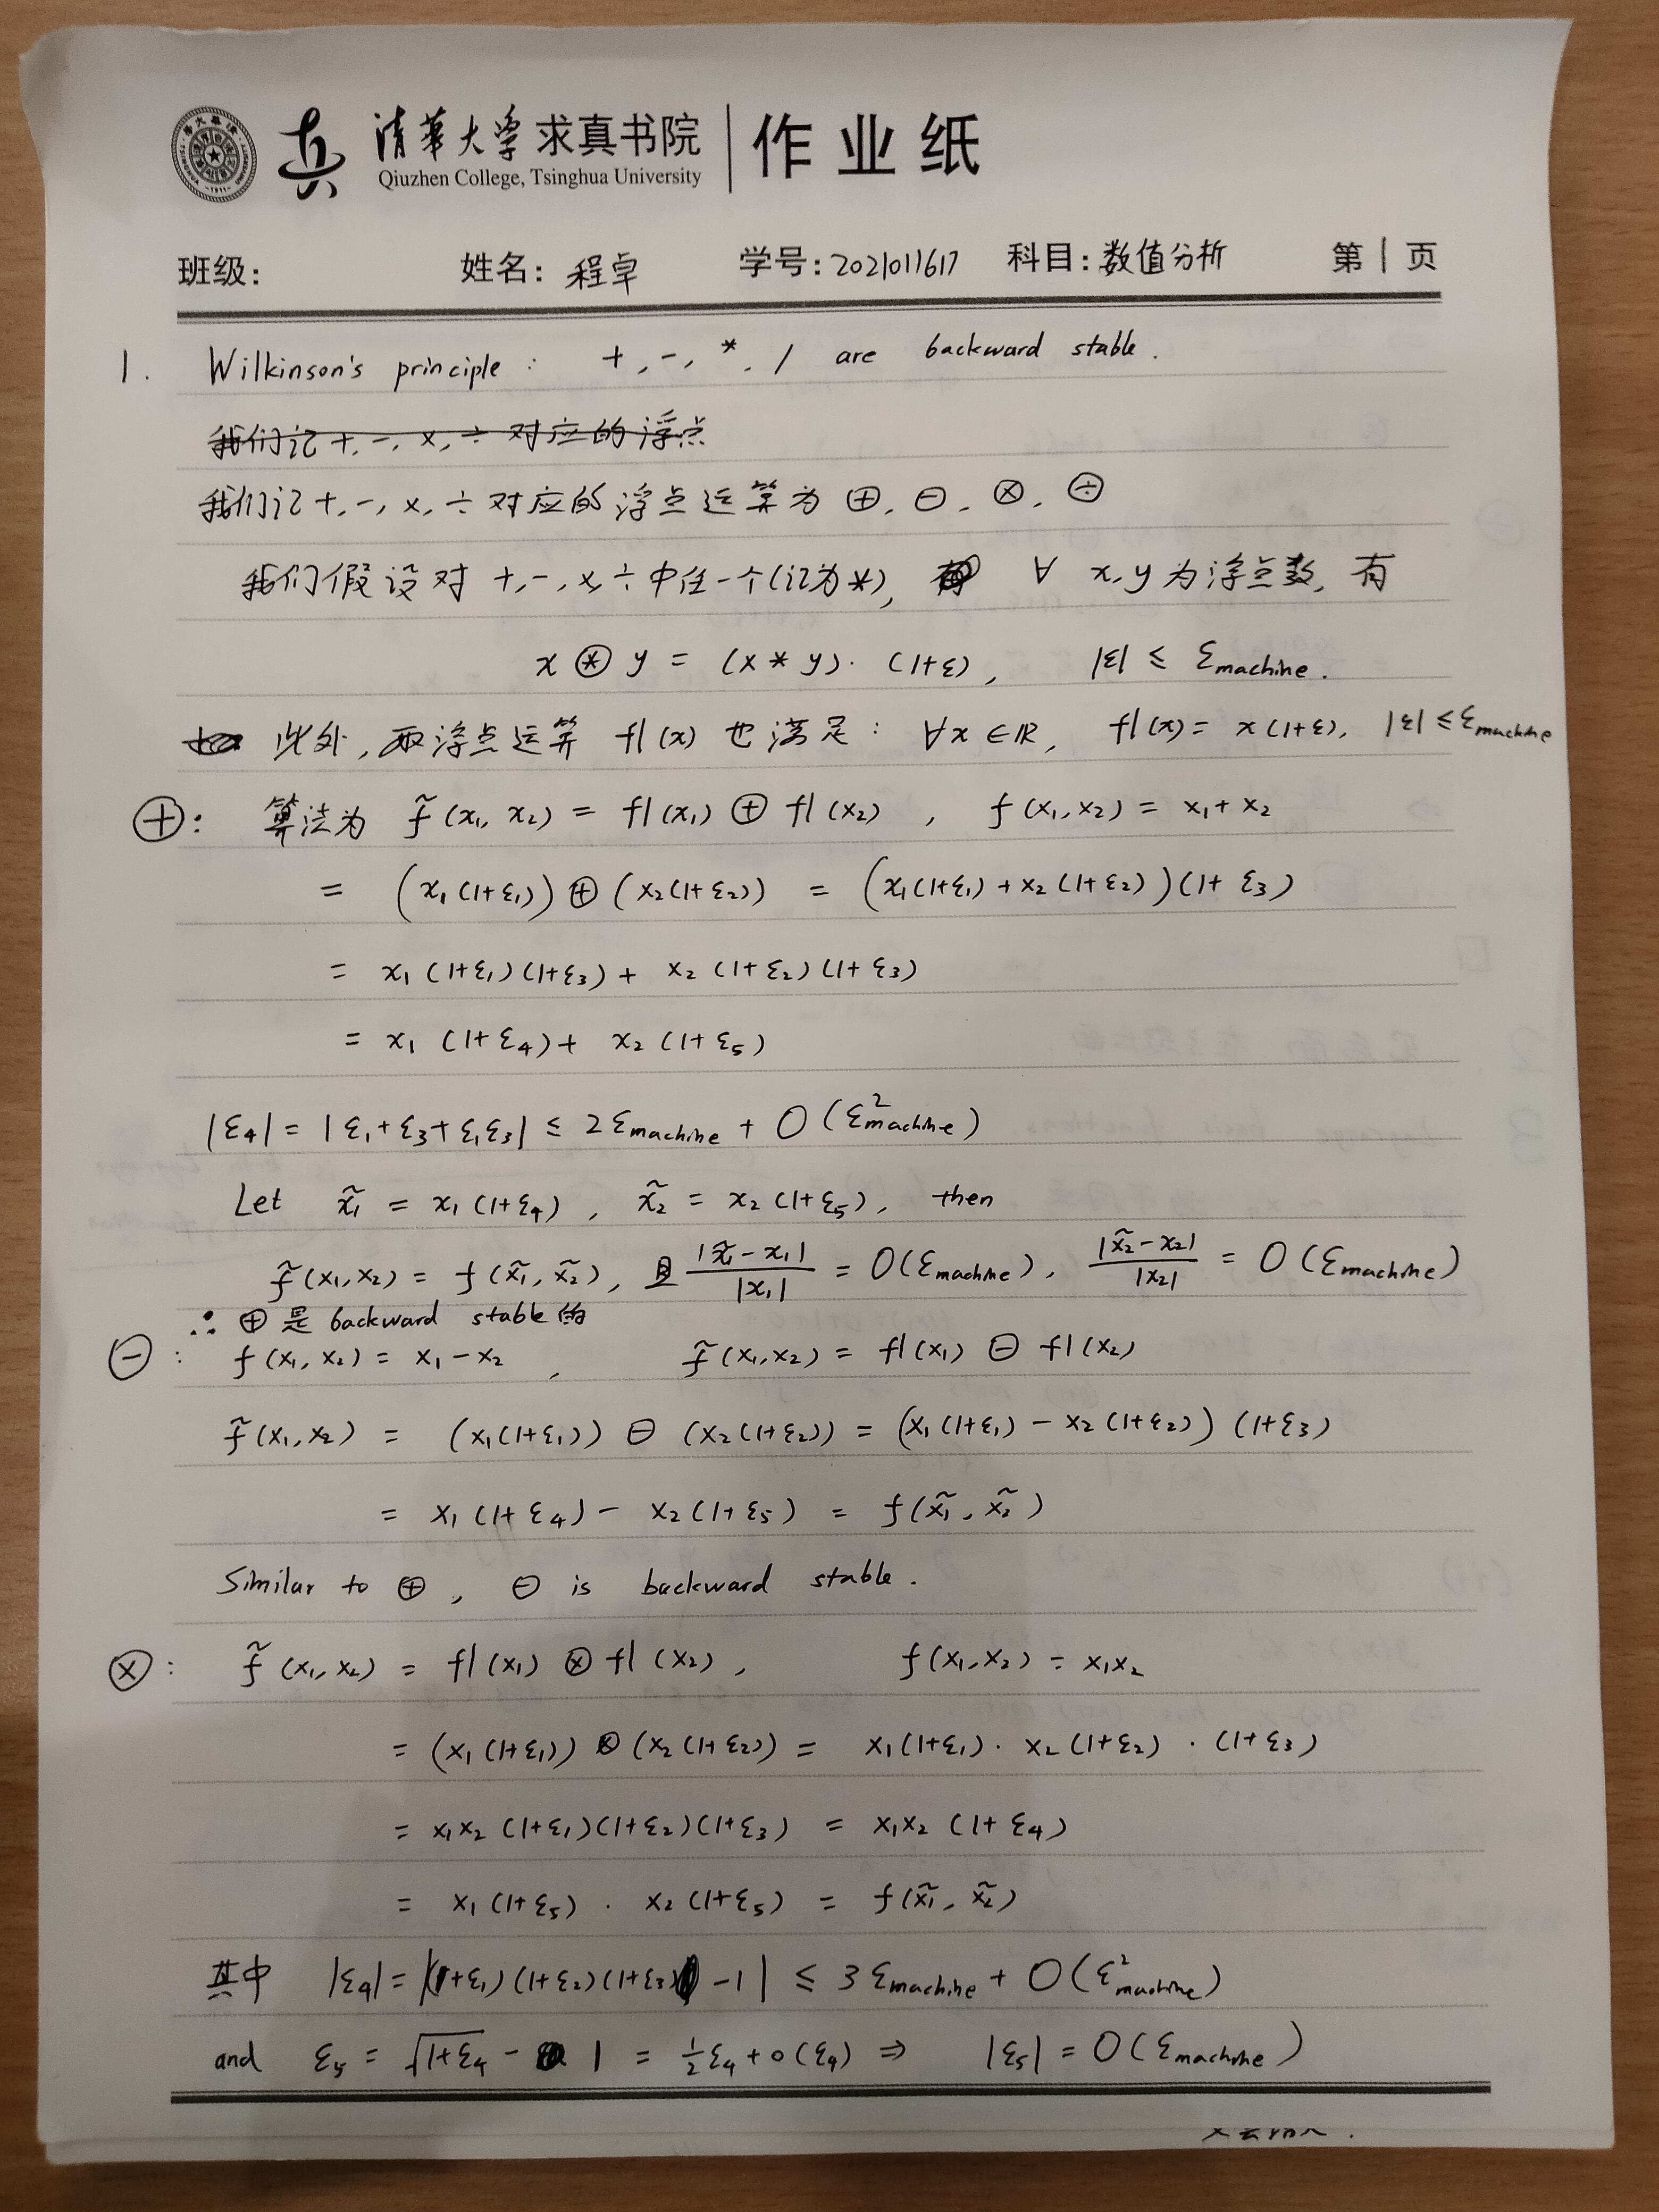 清華大学 求真书院 作业纸
Qiuzhen College, Tsinghua University
班级: 姓名: 程卓 学号: 2021011617 科目: 数值分析 第 1 页
1. Wilkinson's principle : +, -, *, / are backward stable.
我们记 +, -, ×, ÷ 对应的浮点
我们记 +, -, ×, ÷ 对应的浮点运算为 ⊕, ⊖, ⊗, ⨸
我们假设对 +, -, ×, ÷ 中任一个(记为*), ∀ x, y 为浮点数, 有
x ⊛ y = (x * y)· (1+ε), |ε| ≤ ε_machine.
此处, 取浮点运算 fl(x) 也满足: ∀x ∈ ℝ, fl(x) = x(1+ε), |ε| ≤ ε_machine
⊕: 算法为 f̃(x₁, x₂) = fl(x₁) ⊕ fl(x₂), f(x₁, x₂) = x₁ + x₂
= (x₁(1+ε₁)) ⊕ (x₂(1+ε₂)) = (x₁(1+ε₁) + x₂(1+ε₂))(1+ε₃)
= x₁(1+ε₁)(1+ε₃) + x₂(1+ε₂)(1+ε₃)
= x₁(1+ε₄) + x₂(1+ε₅)
|ε₄| = |ε₁+ε₃+ε₁ε₃| ≤ 2ε_machine + O(ε²_machine)
Let x̃₁ = x₁(1+ε₄), x̃₂ = x₂(1+ε₅), then
f̃(x₁, x₂) = f(x̃₁, x̃₂), 且 |x̃₁ - x₁| / |x₁| = O(ε_machine), |x̃₂ - x₂| / |x₂| = O(ε_machine)
∴ ⊕ 是 backward stable 的
⊖: f(x₁, x₂) = x₁ - x₂, f̃(x₁, x₂) = fl(x₁) ⊖ fl(x₂)
f̃(x₁, x₂) = (x₁(1+ε₁)) ⊖ (x₂(1+ε₂)) = (x₁(1+ε₁) - x₂(1+ε₂)) (1+ε₃)
= x₁(1+ε₄) - x₂(1+ε₅) = f(x̃₁, x̃₂)
Similar to ⊕, ⊖ is backward stable.
⊗: f̃(x₁, x₂) = fl(x₁) ⊗ fl(x₂), f(x₁, x₂) = x₁x₂
= (x₁(1+ε₁)) ⊗ (x₂(1+ε₂)) = x₁(1+ε₁)· x₂(1+ε₂) · (1+ε₃)
= x₁x₂(1+ε₁)(1+ε₂)(1+ε₃) = x₁x₂(1+ε₄)
= x₁(1+ε₅) · x₂(1+ε₅) = f(x̃₁, x̃₂)
其中 |ε₄| = |(1+ε₁)(1+ε₂)(1+ε₃) - 1| ≤ 3ε_machine + O(ε²_machine)
and ε₅ = √(1+ε₄) - 1 = ½ε₄ + o(ε₄) ⇒ |ε₅| = O(ε_machine)